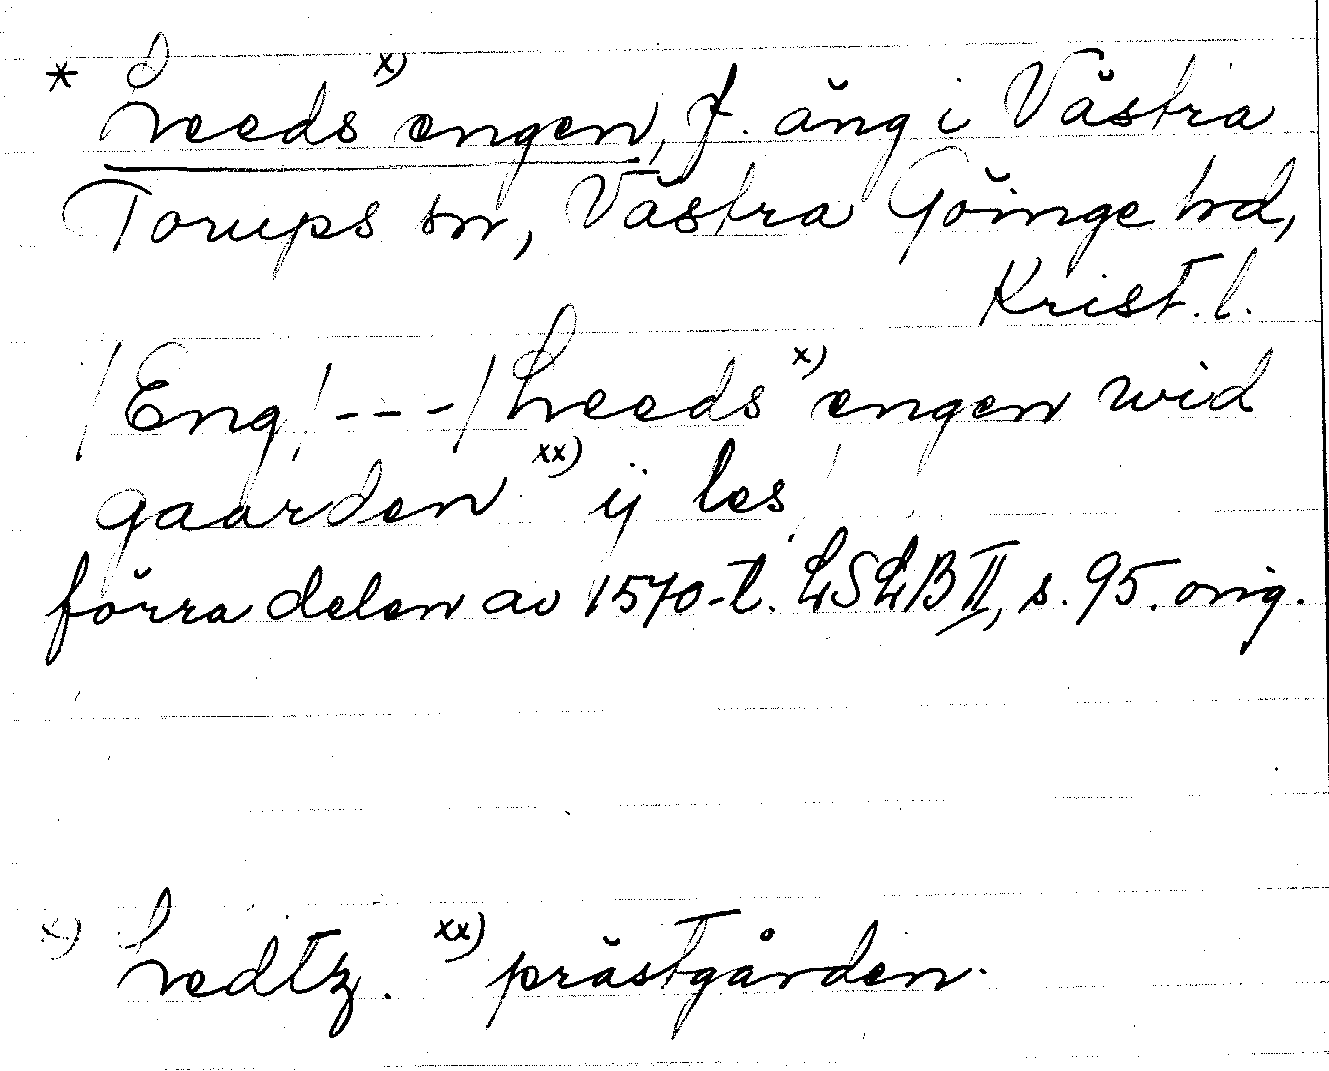 * Leeds x) engen, f. äng i Västra
Torups sn, Västra Göinge hd,
Krist. l.
/Eng/---/Leeds x) engen wid
gaarden xx) ij les
förra delen av 1570-t. LSLB II, s. 95. orig.
x) Ledtz. xx) prästgården.